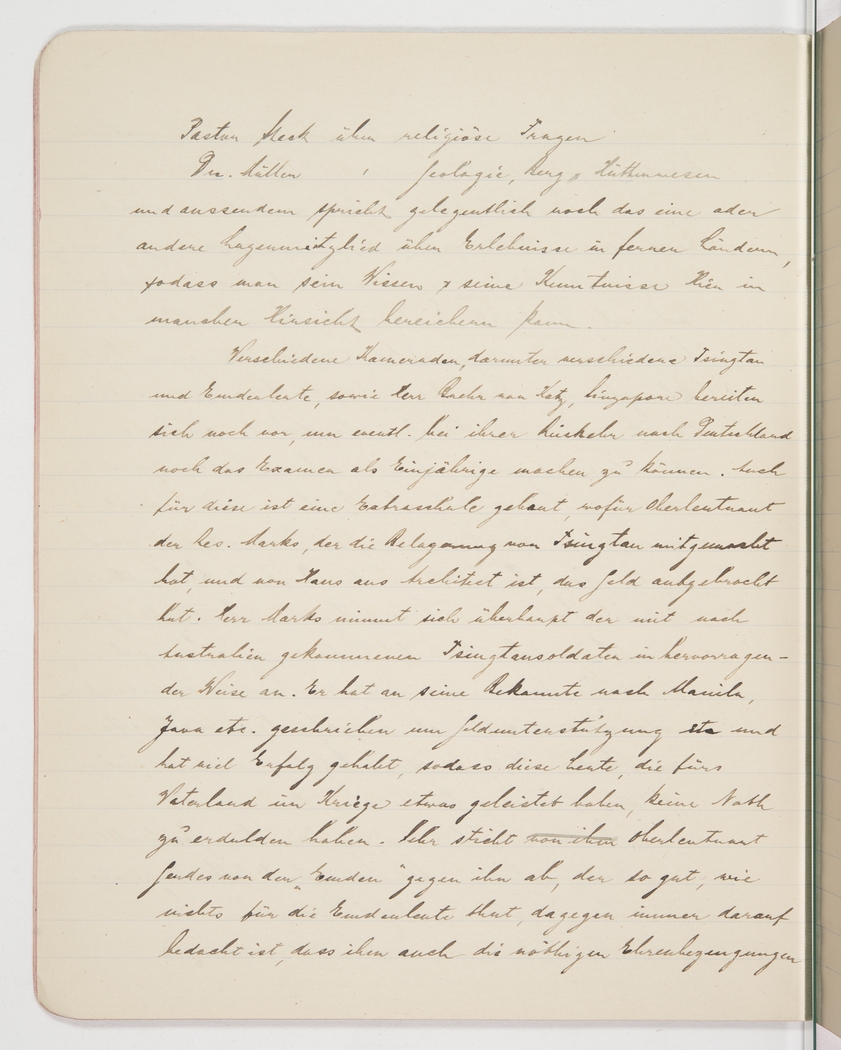 Pastor Meck über religiöse Fragen
Dr. Müller " Geologie, Berg u Hüttenwesen
und ausserdem spricht gelegentlich noch das eine oder
andere Lagermitglied über Erlebnisse in fernen Ländern,
sodass man sein Wissen & seine Kenntnisse hier in
mancher Hinsicht bereichern kann.
Verschiedene Kameraden, darunter verschiedene Tsingtau
und Emdenleute, sowie Herr Baehr von Katz, Singapore bereiten
sich noch vor, um eventl. bei ihrer Rückkehr nach Deutschland
noch das Examen als Einjährige machen zu können. Auch
für diese ist eine Extraschule gebaut, wofür Oberleutnant
der Res. Marks, der die Belagerung von Tsingtau mitgemacht
hat, und von Haus aus Architect ist, das Geld aufgebracht
hat. Herr Marks nimmt sich überhaupt der mit nach
Australien gekommenen Tsingtausoldaten in hervorragen-
der Weise an. Er hat an seine Bekannte nach Manila,
Java etc. geschrieben um Geldunterstützung etc und
hat viel Erfolg gehabt, sodass diese Leute, die fürs
Vaterland im Kriege etwas geleistet haben, keine Noth
zu erdulden haben. Sehr sticht von ihm Oberleutnant
von der „Emden" gegen ihn ab, der so gut, wie
nichts für die Emdenleute thut, dagegen immer darauf
bedacht ist, dass ihm auch die nöthigen Ehrenbezeugungen